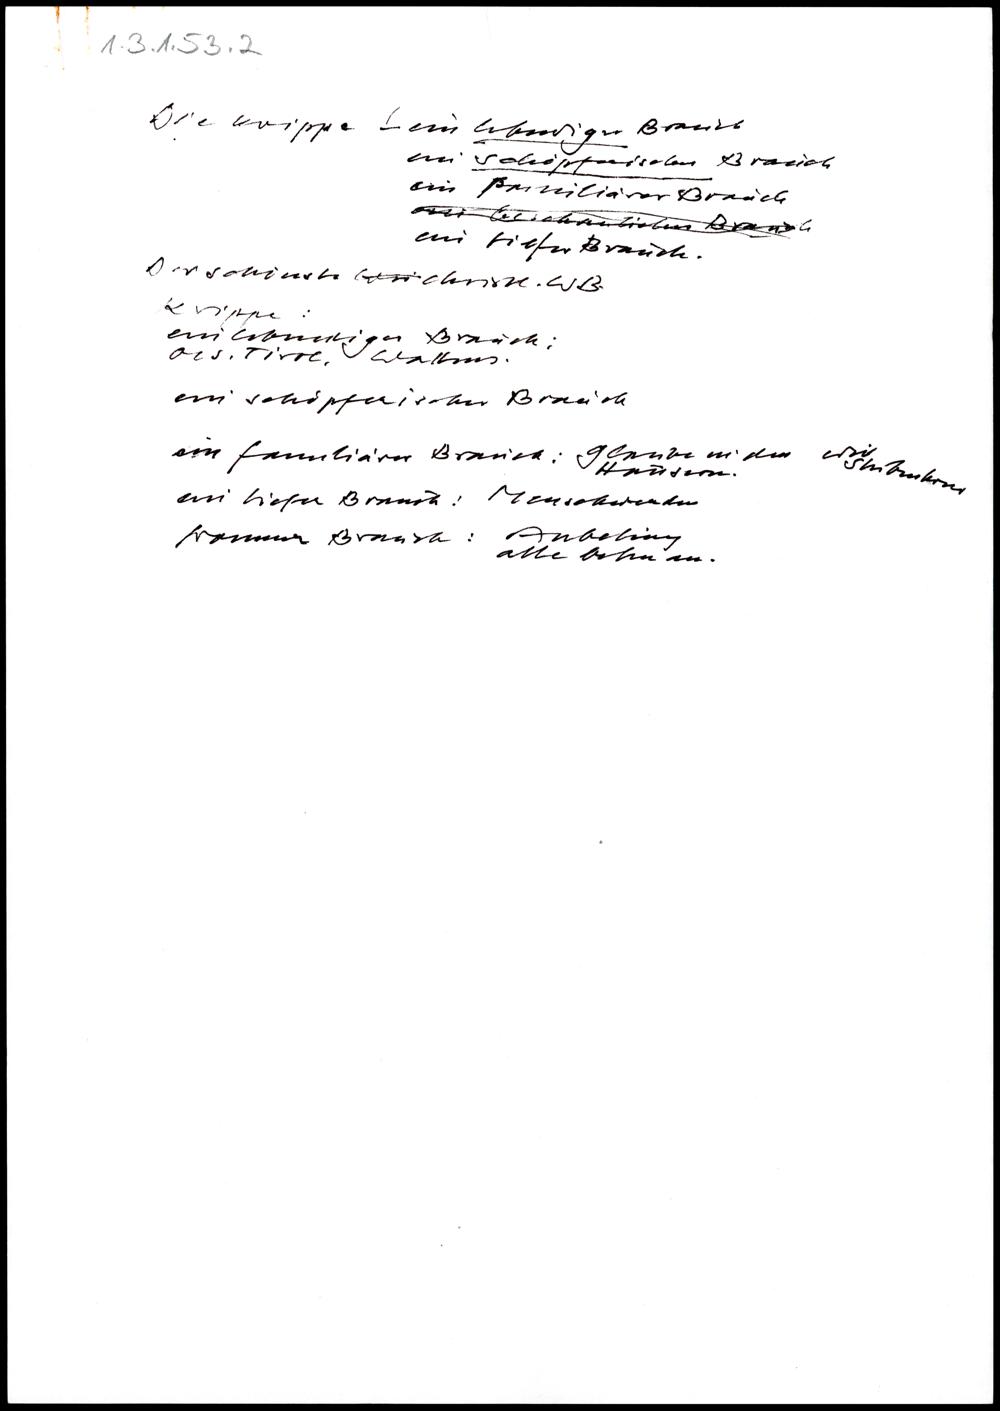 1.3.1.53.2
Die Krippe – ein lebendiger Brauch
ein schöpferischer Brauch
ein familiärer Brauch
ein beschaulicher Brauch
ein tiefer Brauch.
Der schönste christl. WB
Krippe:
ein lebendiger Brauch:
bes. Tirol,
ein schöpferischer Brauch
ein familiärer Brauch: Glaube in den
Häusern.
ein tiefer Brauch: Menschwerden
frommer Brauch: Anbetung
alle beten an.